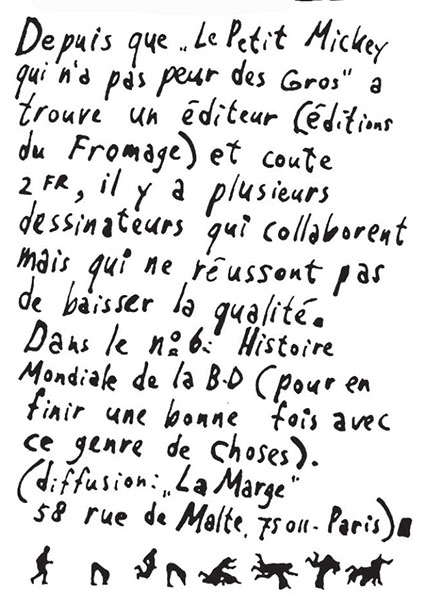 Depuis que „Le Petit Mickey
qui n'a pas peur des Gros" a
trouve un éditeur (éditions
du Fromage) et coute
2 FR, il y a plusieurs
dessinateurs qui collaborent
mais qui ne réussont pas
de baisser la qualité.
Dans le no 6: Histoire
Mondiale de la B-D (pour en
finir une bonne fois avec
ce genre de choses).
(diffusion: „La Marge"
58 rue de Malte, 75011- Paris)